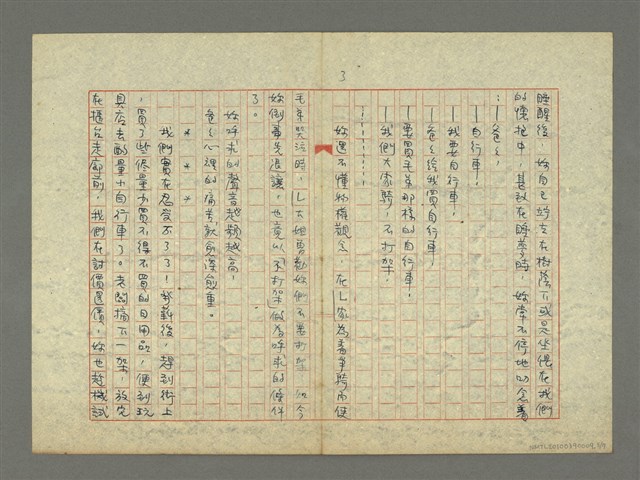 3
睡醒後，妳自己跨立在樹蔭下或是坐偎在我們
的懷抱中，甚致在睡夢時，妳常不停地叨念著
：—爸爸，
—自行車，
—我要自行車，
—爸爸給我買自行車，
—要買毛弟那樣的自行車，
—我們大家騎，不打架，
…………
妳還不懂物權觀念，在L家為着爭騎而使
毛弟哭泣時，L大姐勇勸妳們不要打架，如今
妳倒事先退讓，也竟以「不打架」做為呼求的條件
了。
妳呼求的聲音越頻越高，
爸爸心裡的痛苦就愈深愈重。
＊　＊　＊
我們實在忍受不了了！發薪後，趕到街上
，買了些儘量少買不得不買的日用品，便到玩
具店去配量小自行車了。老闆摘下一架，放完
在櫃台走廊前，我們在討價還價，妳也趁機試